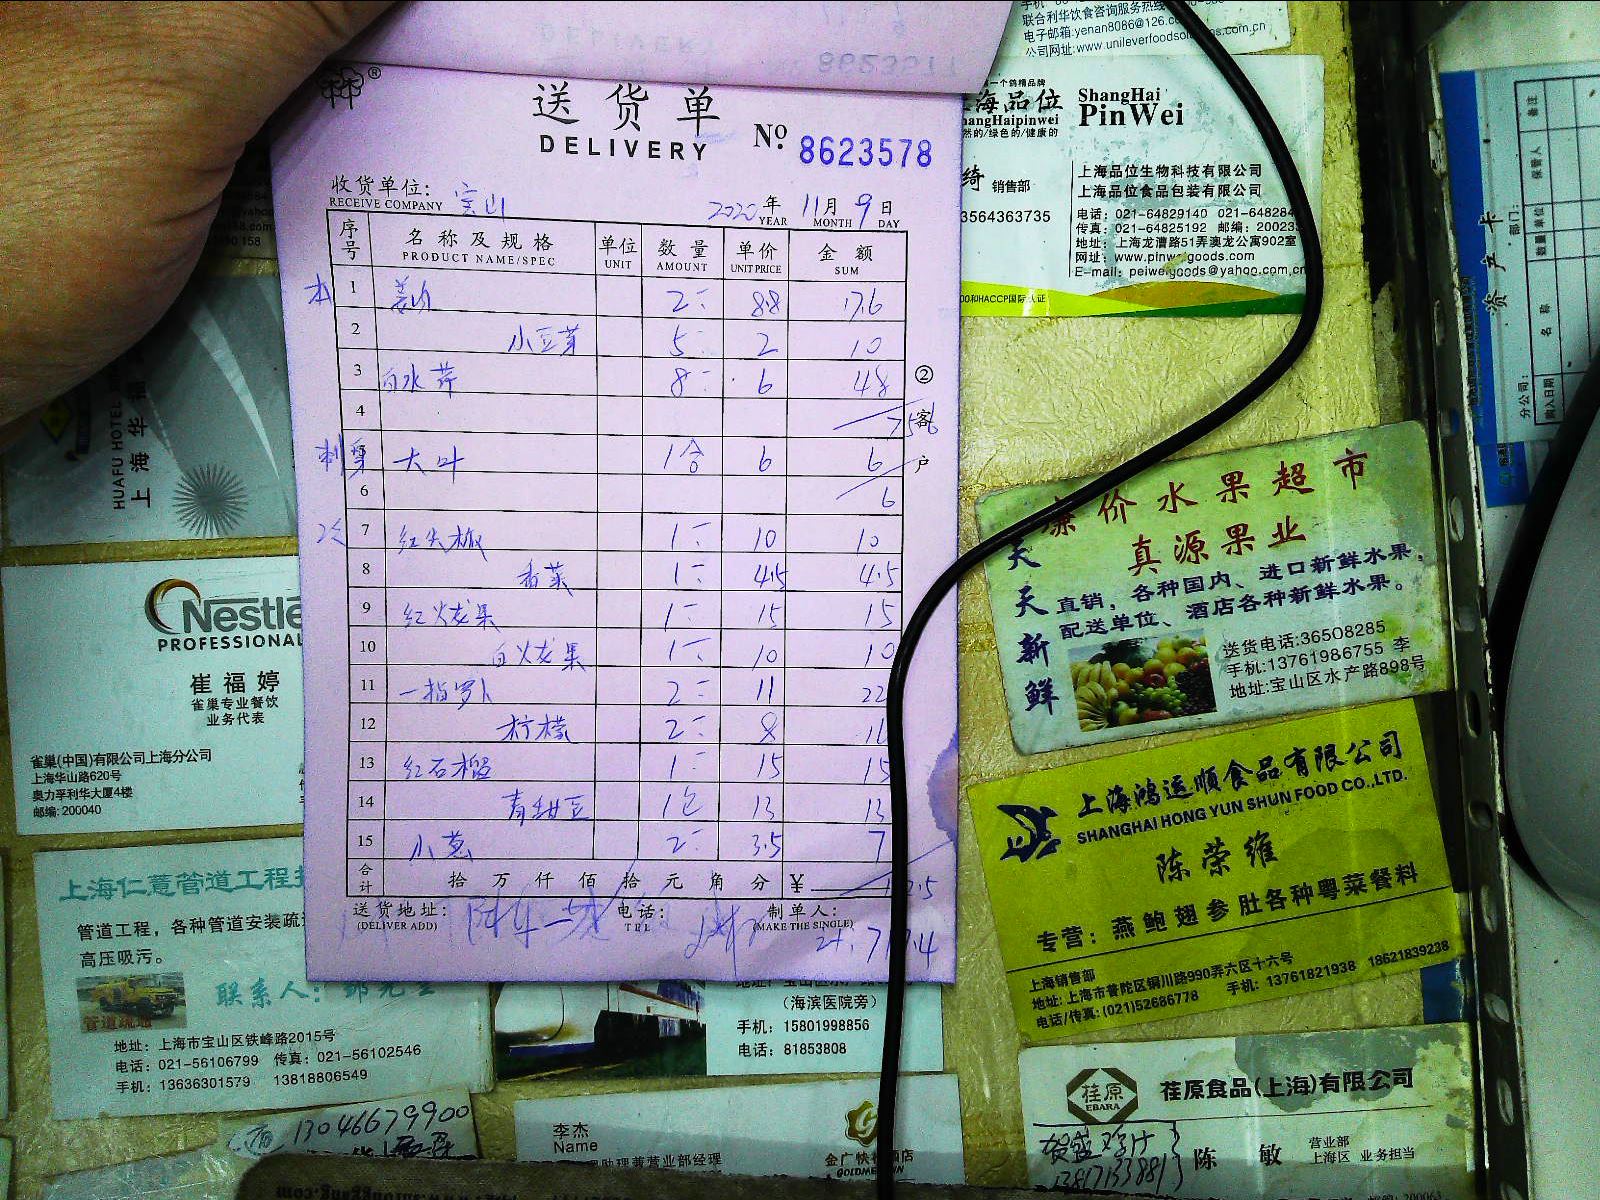 送货单
DELIVERY
№ 8623578
收货单位: 宝山
RECEIVE COMPANY
2020年 11月 9日
YEAR MONTH DAY
序号 名称及规格 单位 数量 单价 金额
PRODUCT NAME/SPEC UNIT AMOUNT UNIT PRICE SUM
1 2 8.8 17.6
2 小豆芽 5 2 10
3 白水芹 8 6 48
4
5 大叶 1合 6 6
6 6
7 红尖椒 1 10 10
8 香菜 1 4.5 4.5
9 红火龙果 1 15 15
10 白火龙果 1 10 10
11 一指萝卜 2 11 22
12 柠檬 2 8
13 红石榴 1 15 15
14 青甜豆 1包 13 13
15 小葱 2 3.5 7
合计 拾万仟佰拾元角分 ¥
送货地址: 电话: 制单人:
(DELIVER ADD) TEL (MAKE THE SINGLE)
②客户
联合利华饮食咨询服务热线
电子邮箱:yenan8086@126.co
公司网址:www.unileverfoodsolutions.com.cn
海品位 ShangHai
PinWei
销售部
3564363735
上海品位生物科技有限公司
上海品位食品包装有限公司
电话: 021-64829140 021-64828
传真: 021-64825192 邮编: 20023
地址: 上海龙漕路51弄澳龙公寓902室
网址: www.pinweigoods.com
E-mail: peiweigoods@yahoo.com.cn
资产卡
部门:
分公司:
购入日期 名称 数量 单位 保管人 备注
廉价水果超市
真源果业
天天新鲜
直销,各种国内、进口新鲜水果,
配送单位、酒店各种新鲜水果。
送货电话:36508285
手机:13761986755 李
地址:宝山区水产路898号
HUAFU HOTEL
上海华
Nestle
PROFESSIONAL
崔福婷
雀巢专业餐饮
业务代表
雀巢(中国)有限公司上海分公司
上海华山路620号
奥力孚利华大厦4楼
邮编: 200040
上海鸿运顺食品有限公司
SHANGHAI HONG YUN SHUN FOOD CO.,LTD.
陈荣维
专营: 燕鲍翅参肚各种粤菜餐料
上海销售部
地址: 上海市普陀区铜川路990弄六区十六号
电话/传真: (021)52686778 手机: 13761821938 18621839238
上海仁薏管道工程
管道工程,各种管道安装疏
高压吸污。
联系人:
管道疏通
地址: 上海市宝山区铁峰路2015号
电话: 021-56106799 传真: 021-56102546
手机: 13636301579 13818806549
(海滨医院旁)
手机: 15801998856
电话: 81853808
13046679900
李杰
Name
荏原
EBARA
荏原食品(上海)有限公司
陈敏
营业部
上海区 业务担当